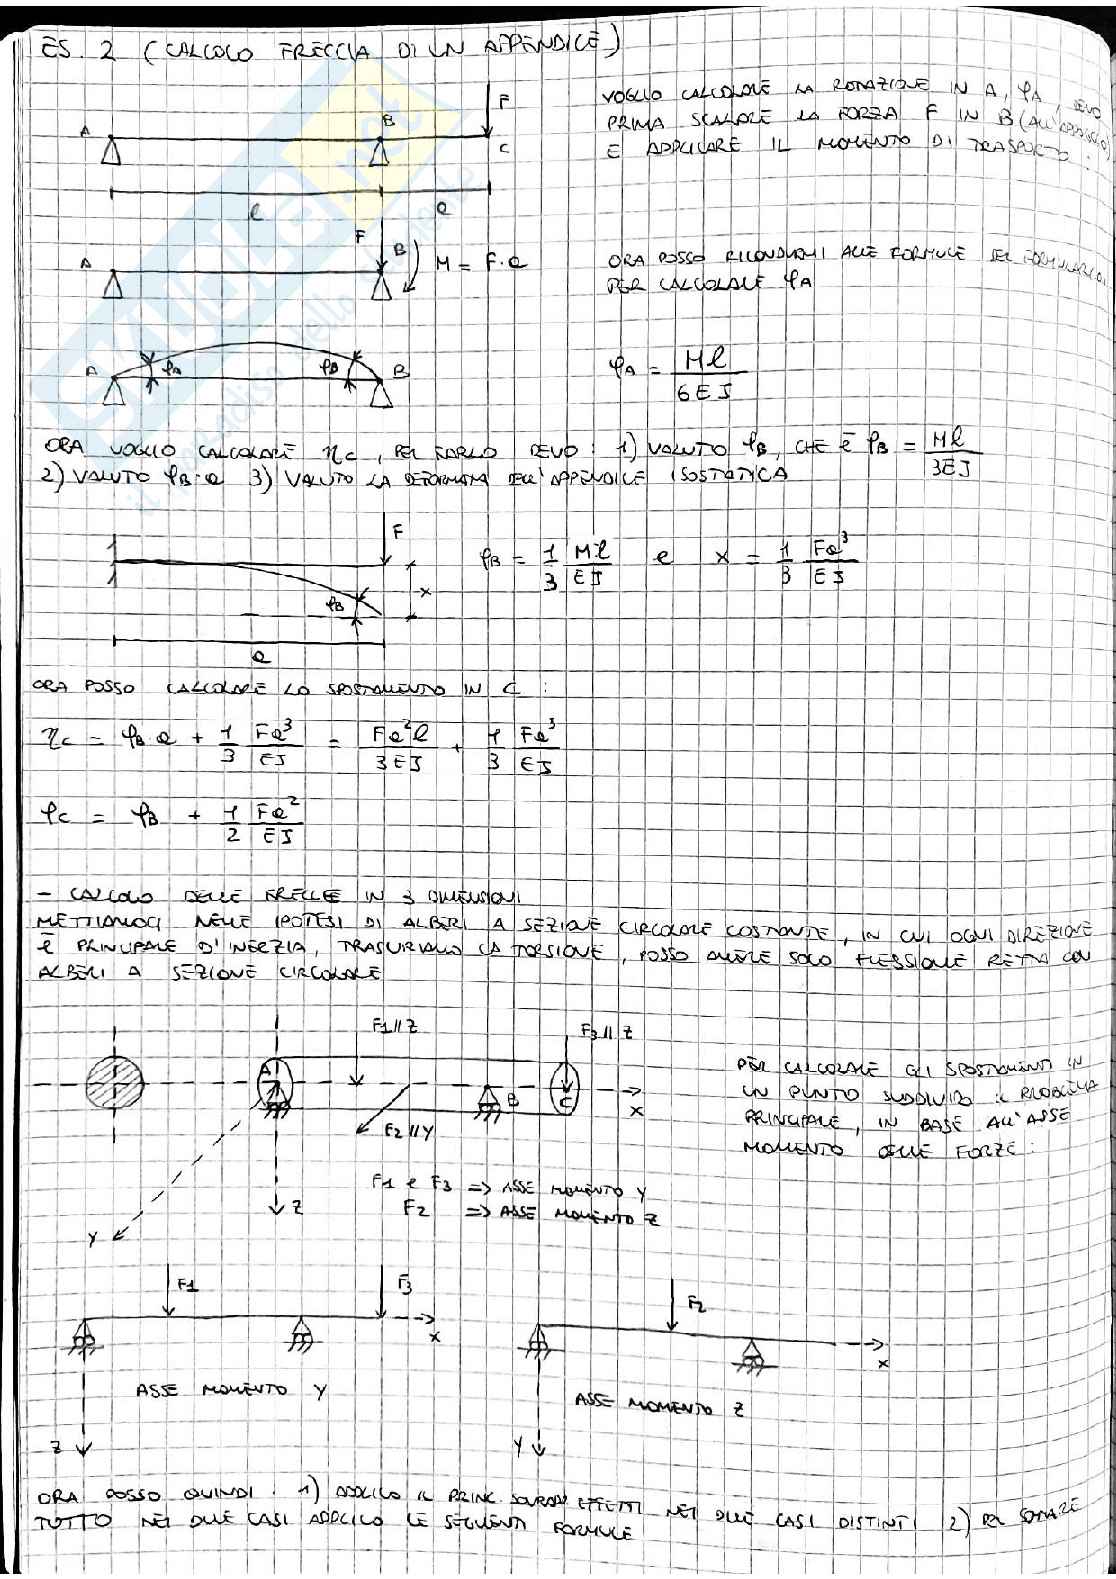 ES. 2 (CALCOLO FRECCIA DI UN APPENDICE)
VOGLIO CALCOLARE LA ROTAZIONE IN A, φA, DEVO
PRIMA SCALARE LA FORZA F IN B (ALL'APPOGGIO)
E APPLICARE IL MOMENTO DI TRASPORTO:
A B F C
l a
A F B M = F·a
ORA POSSO RICONDURMI ALLE FORMULE DEL FORMULARIO
PER CALCOLARE φA
A φA φB B
φA = Ml / 6EJ
ORA VOGLIO CALCOLARE ηC, PER FARLO DEVO: 1) VALUTO φB, CHE È φB = Ml / 3EJ
2) VALUTO φB·a 3) VALUTO LA DEFORMATA DELL'APPENDICE ISOSTATICA
F x φB a
φB = 1/3 Ml/EJ e x = 1/3 Fa³/EJ
ORA POSSO CALCOLARE LO SPOSTAMENTO IN C:
ηC = φB·a + 1/3 Fa³/EJ = Fa²l/3EJ + 1/3 Fa³/EJ
φC = φB + 1/2 Fa²/EJ
- CALCOLO DELLE FRECCE IN 3 DIMENSIONI
METTIAMOCI NELLE IPOTESI DI ALBERI A SEZIONE CIRCOLARE COSTANTE, IN CUI OGNI DIREZIONE
È PRINCIPALE D'INERZIA, TRASCURIAMO LA TORSIONE, POSSO AVERE SOLO FLESSIONE RETTA CON
ALBERI A SEZIONE CIRCOLARE
F1//Z F3//Z
A B C x
F2//Y
Y Z
PER CALCOLARE GLI SPOSTAMENTI IN
UN PUNTO SUDDIVIDO IL PROBLEMA
PRINCIPALE, IN BASE ALL'ASSE
MOMENTO DELLE FORZE:
F1 e F3 => ASSE MOMENTO Y
F2 => ASSE MOMENTO Z
F1 F3 x
F2 x
ASSE MOMENTO Y
ASSE MOMENTO Z
Z Y
ORA POSSO QUINDI: 1) APPLICO IL PRINC. SOVRAP. EFFETTI NEI DUE CASI DISTINTI 2) PER SOMMARE
TUTTO NEI DUE CASI APPLICO LE SEGUENTI FORMULE